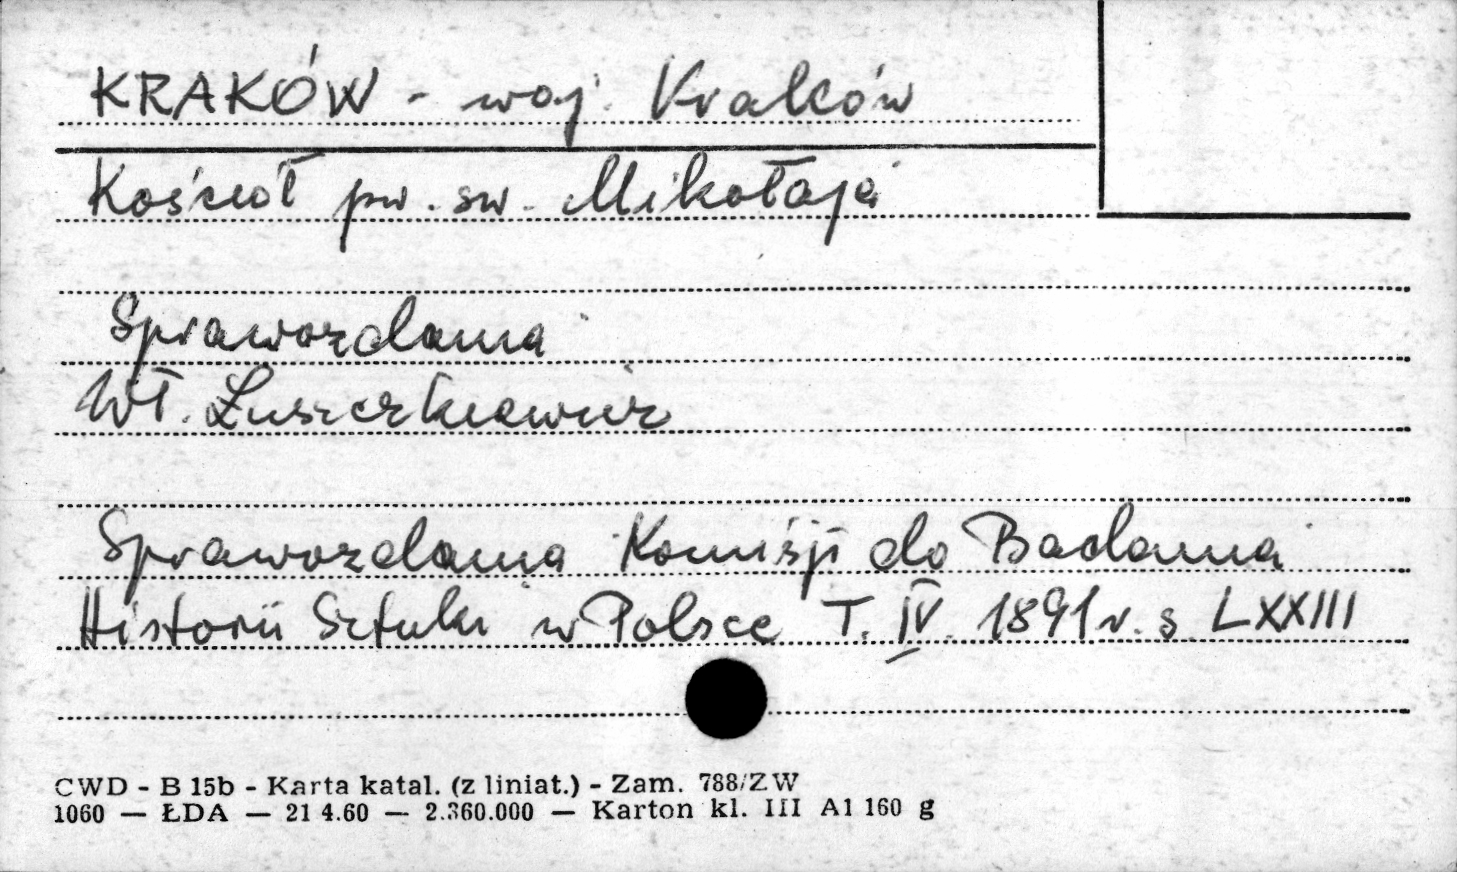 KRAKÓW - woj. Kraków
Kościół pw. św. Mikołaja
Sprawozdania
Wł. Łuszczkiewicz
Sprawozdania Komisji do Badania
Historii Sztuki w Polsce T. IV. 1891 r. s LXXIII
CWD - B 15b - Karta katal. (z liniat.) - Zam. 788/ZW
1060 — ŁDA — 21 4.60 — 2.360.000 — Karton kl. III A1 160 g